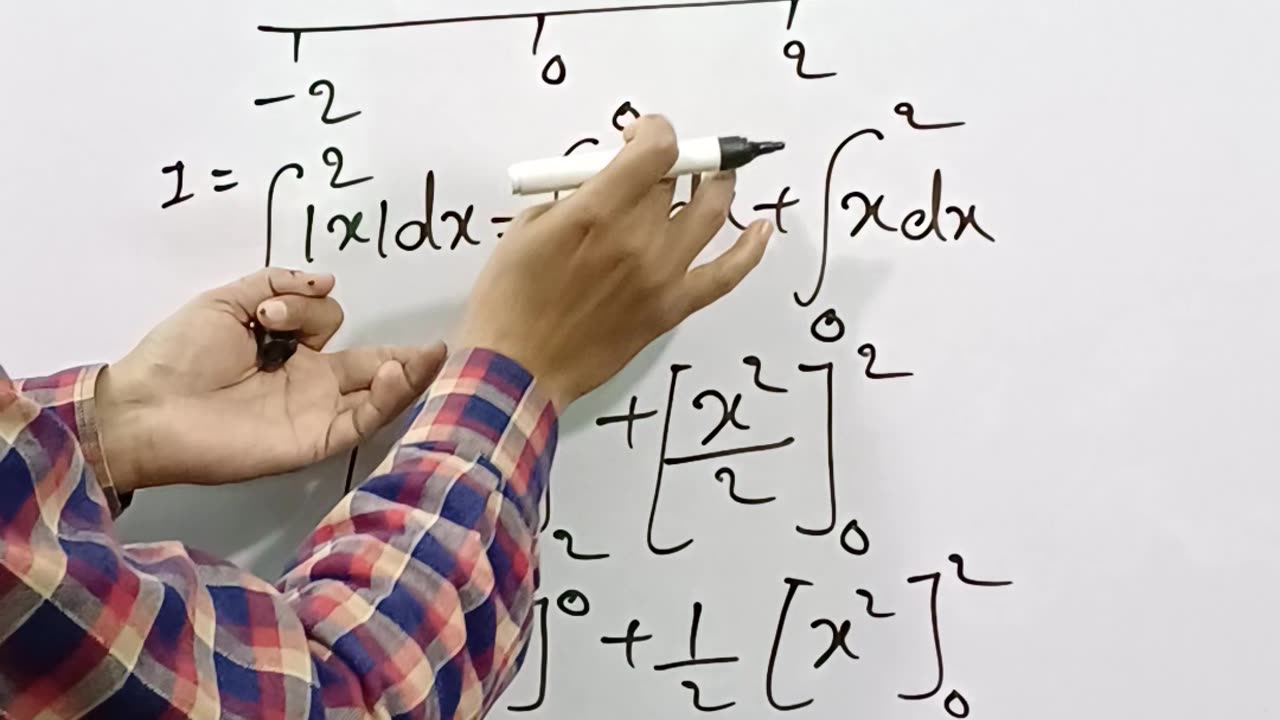 -2 0 2
I = ∫ 2 |x| dx = ∫ 0 d + ∫ 0 2 x dx
2 + [x²/2] 0 2
] 0 + 1/2 [x²] 0 2